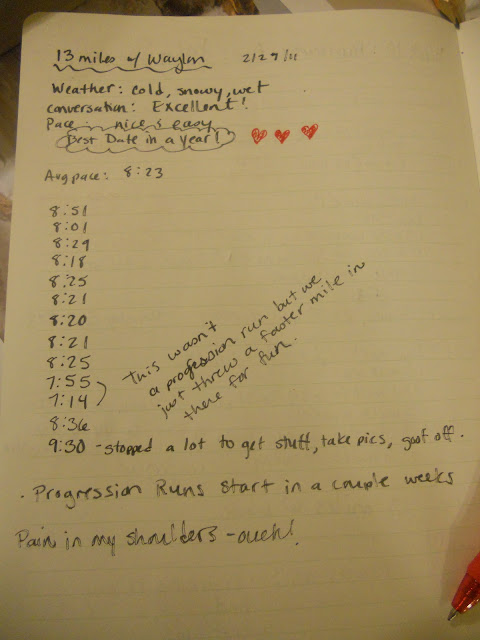 13 miles w/ Waylon 2/27/11
Weather: cold, snowy, wet
conversation: Excellent!
Pace - nice & easy
Best Date in a year!
Avg pace: 8:23
8:51
8:01
8:29
8:18
8:25
8:21
8:20
8:21
8:25
7:55
7:14
This wasn't
a progession run but we
just threw a faster mile in
there for fun.
8:36
9:30 - stopped a lot to get stuff, take pics, goof off.
· Progression Runs start in a couple weeks
Pain in my shoulders - ouch!